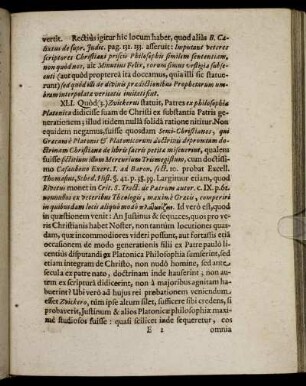 vertit. Rectius igitur hic locum habet, quod aliis B. Ca-
lixtus de supr. Judic. pag. 131. 133. asseruit: Imputant veteres
scriptores Christiani priscis Philosophis similem sententiam,
non quòd nos, ait Minutius Felix, eorum simus vestigia subse-
cuti (aut quòd propterea ita doceamus, quia illi sic statue-
runt) sed quod illi de divinis prædictionibus Prophetarum um-
bram interpolatæ veritatis imitati sint.
XLI. Quòd (3.) Zwickerus statuit, Patres ex philosophia
Platonica didicisse suam de Christi ex substantia Patris ge-
neratione; illud itidem nulla solida ratione nititur. Non
equidem negamus, fuisse quosdam Semi-Christianos, qui
Græcanæ Platonis & Platonicorum doctrinæ depromtam do-
ctrinam Christianæ de libris sacris petitæ miscuerint, quales
fuisse fictitium illum Mercurium Trismegistum, cum doctissi-
mo Casaubono Exerc. I. ad Baron. sect. 10. probat Excell.
Thomasius, Sched. Hist. §. 42. p. 38. 39. Largimur etiam, quod
Rivetus monet in Crit. S. Tract. de Patrum autor. C. IX. p. 61.
nonnullos ex Veteribus Theologis, maximè Græcis, reperiri
in quibusdam locis aliquò modò πλατωνίζειν. Id verò est, quod
in quæstionem venit: An Justinus & sequaces, quos pro ve-
ris Christianis habet Noster, non tantùm locutiones quas-
dam, quæ incommodiores videri possunt, aut fortassis etiam
occasionem de modo generationis filii ex Patre paulò li-
centiùs disputandi ex Platonica Philosophia sumserint, sed
etiam integram de Christo, non nodò homine, sed ante
secula ex patre nato, doctrinam inde hauserint, non au-
tem ex scriptura didicerint, non à majoribus agnitam ha-
buerint? Ubi verò ad hujus rei probationem veniendum
esset Zwickero, tùm ipse altum silet, sufficere sibi credens, si
probaverit, Justinum & alios Platonicæ philosophiæ maxi-
mè studiosos fuisse: quasi scilicet inde sequeretur, eos
E 2 omnia